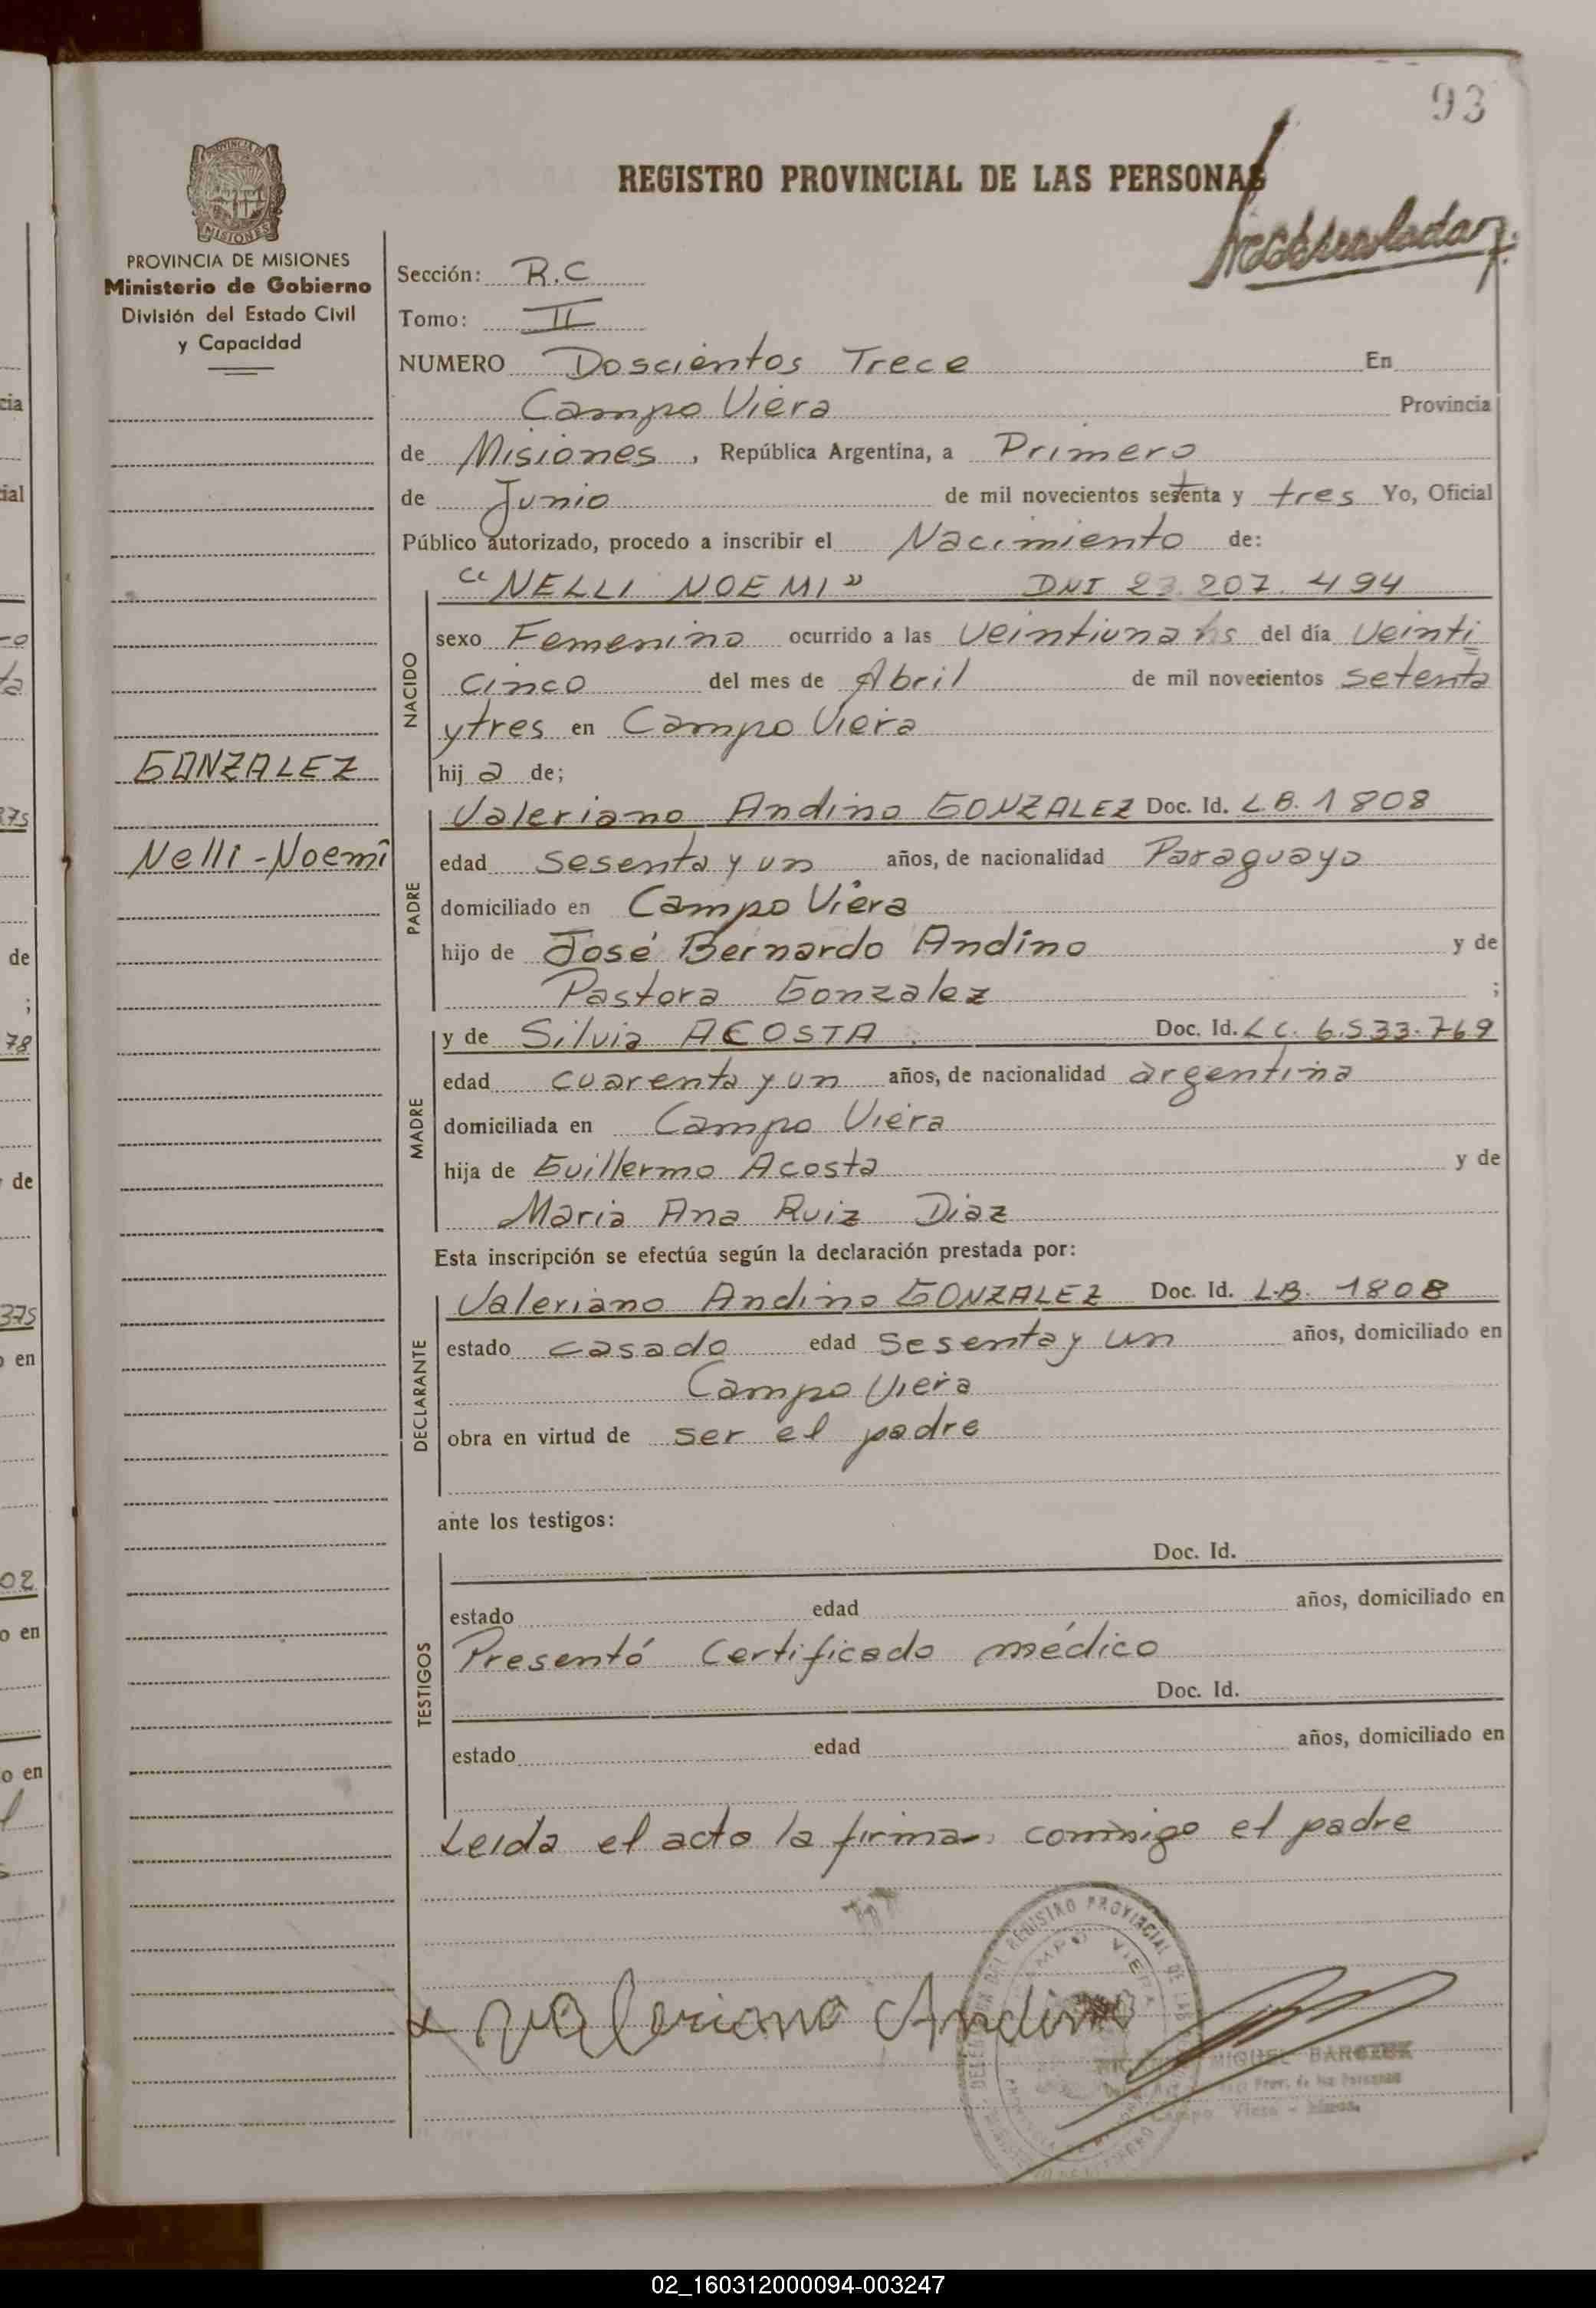 93
REGISTRO PROVINCIAL DE LAS PERSONAS
PROVINCIA DE
MISIONES
PROVINCIA DE MISIONES
Ministerio de Gobierno
División del Estado Civil
y Capacidad
Sección: R.C
Tomo: II
NUMERO Doscientos Trece En
Campo Viera Provincia
de Misiones, República Argentina, a Primero
de Junio de mil novecientos setenta y tres Yo, Oficial
Público autorizado, procedo a inscribir el Nacimiento de:
"NELLI NOEMI" DNI 23.207.494
NACIDO
sexo Femenino ocurrido a las veintiuna hs del día Veinti
cinco del mes de Abril de mil novecientos setenta
y tres en Campo Viera
hij a de;
GONZALEZ
Nelli-Noemi
PADRE
Valeriano Andino GONZALEZ Doc. Id. L.B. 1808
edad sesenta y un años, de nacionalidad Paraguaya
domiciliado en Campo Viera
hijo de José Bernardo Andino y de
Pastora Gonzalez ;
MADRE
y de Silvia ACOSTA Doc. Id. LC. 6.533.769
edad cuarenta y un años, de nacionalidad argentina
domiciliada en Campo Viera
hija de Guillermo Acosta y de
Maria Ana Ruiz Diaz
Esta inscripción se efectúa según la declaración prestada por:
DECLARANTE
Valeriano Andino GONZALEZ Doc. Id. L.B. 1808
estado casado edad sesenta y un años, domiciliado en
Campo Viera
obra en virtud de ser el padre
ante los testigos:
TESTIGOS
Doc. Id.
estado edad años, domiciliado en
Presentó Certificado médico
Doc. Id.
estado edad años, domiciliado en
Leida el acto la firma conmigo el padre
Valeriano Andino
REGISTRO PROVINCIAL DE LAS
CAMPO VIERA
MIGUEL
Prov. de las Personas
Campo Viera
cia
cial
de
;
78
de
375
o en
02
o en
o en
02_160312000094-003247